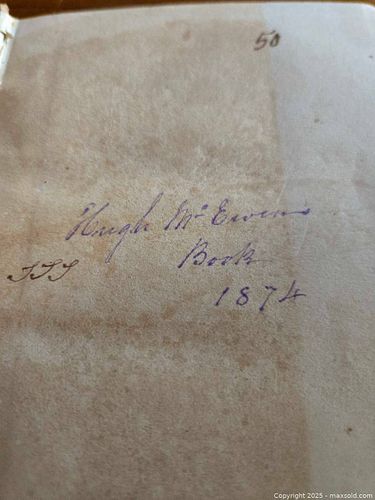 50
Hugh Mc Ewens
Book
1874
Copyright 2025 - maxsold.com